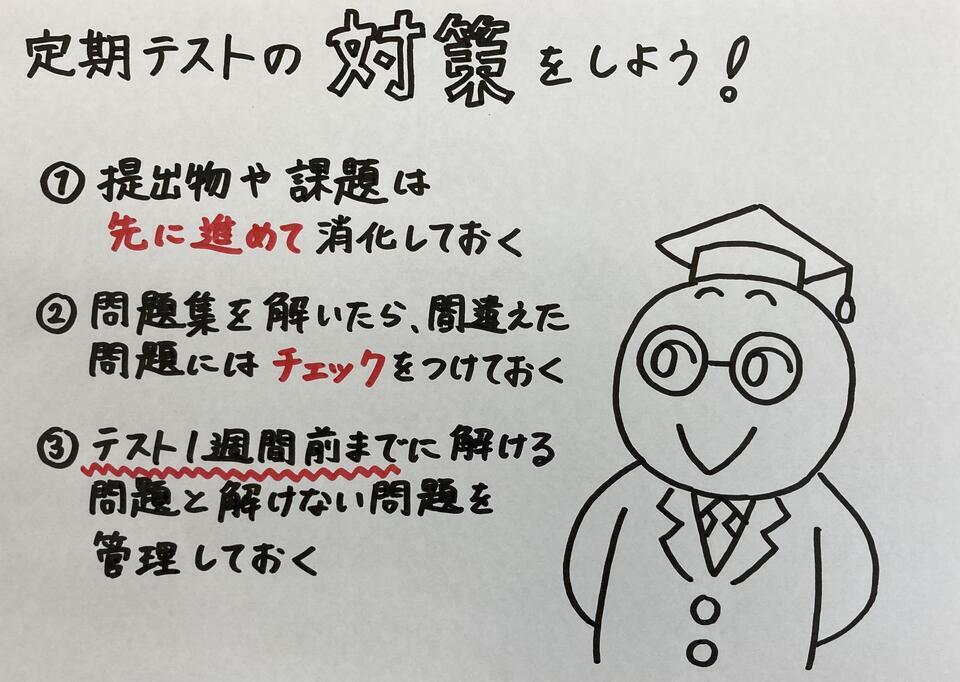 定期テストの対策をしよう!
① 提出物や課題は
先に進めて消化しておく
② 問題集を解いたら、間違えた
問題にはチェックをつけておく
③ テスト1週間前までに解ける
問題と解けない問題を
管理しておく